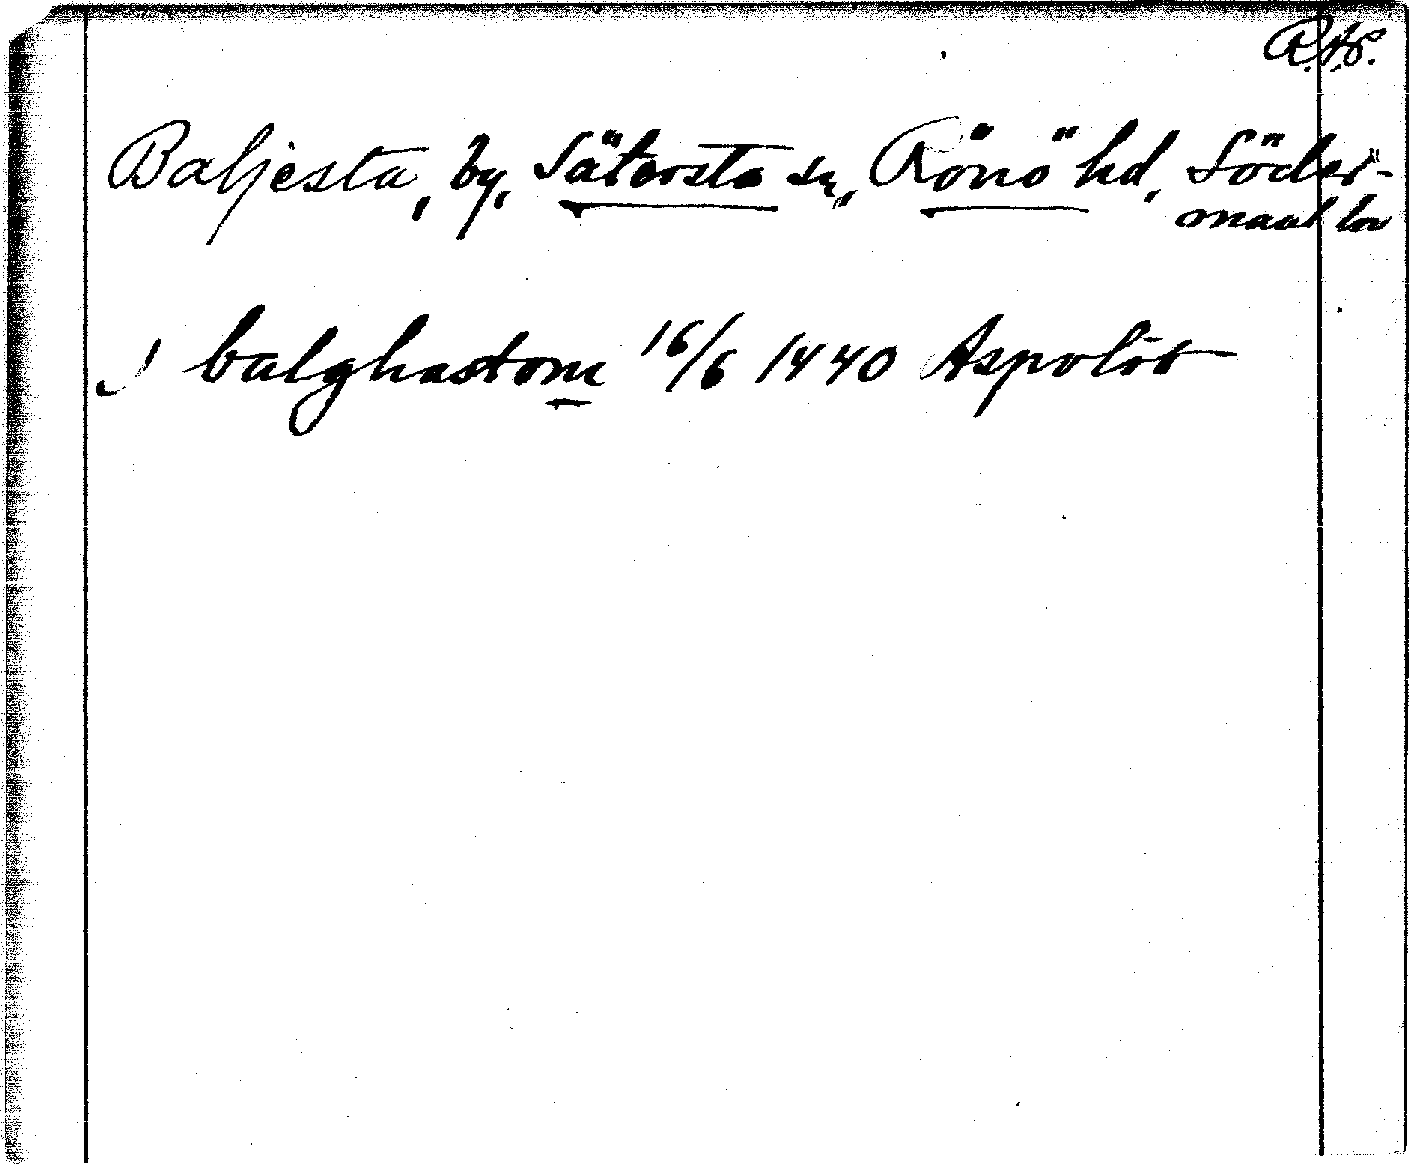 R.A.P.
Baljesta, by, Sätersta sn, Rönö hd, Söder-
manl. län
J balghastom 16/6 1440 Aspolöt